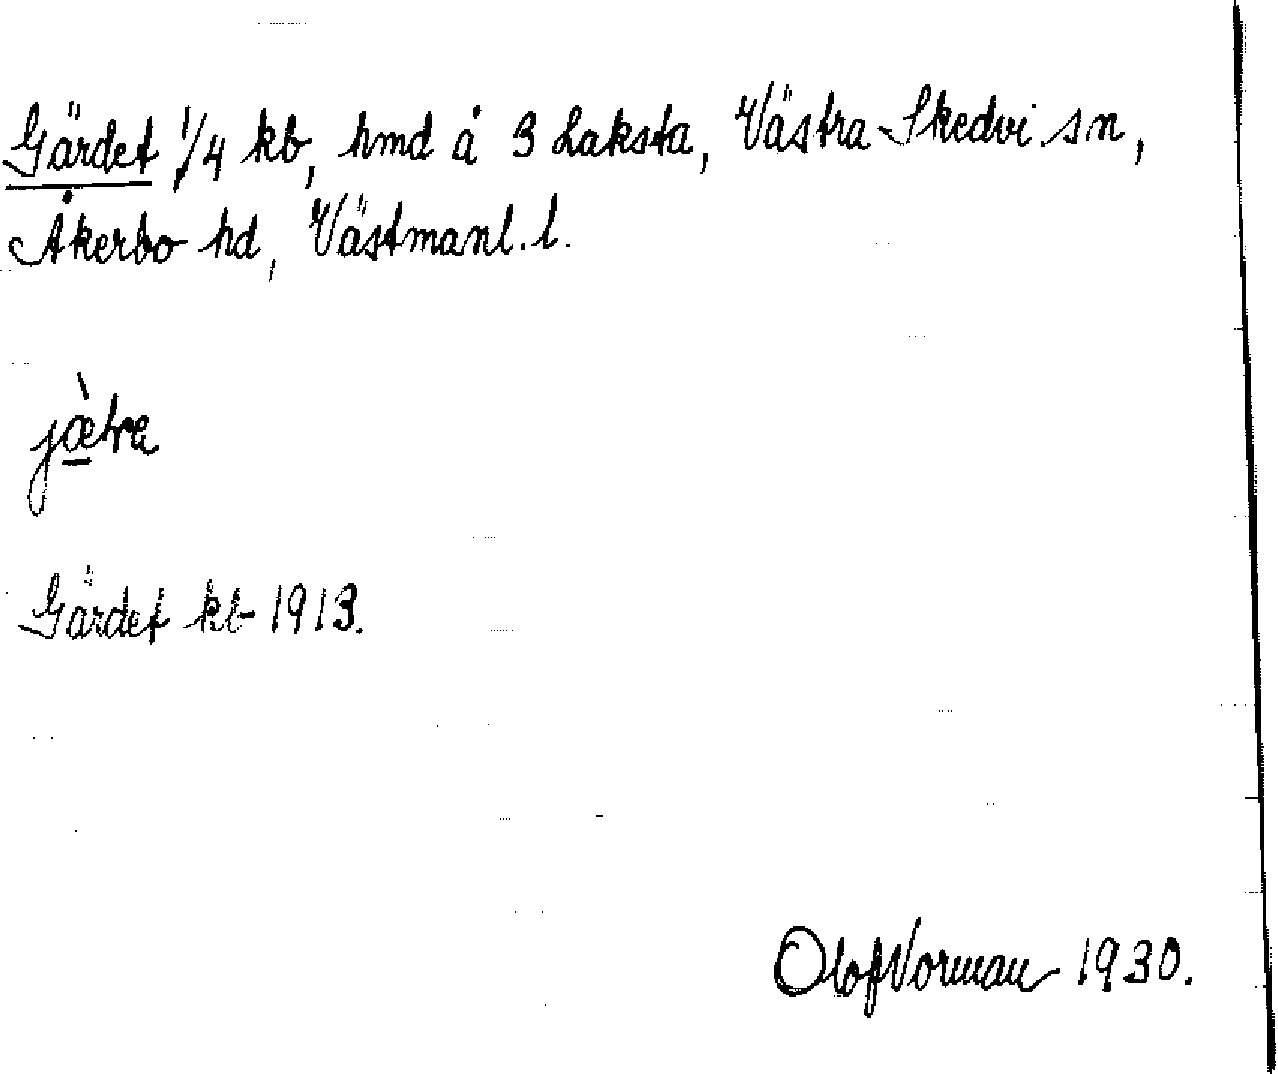 Gärdet 1/4 kb, hmd å 3 Laksta, Västra Skedvi sn,
Åkerbo hd, Västmanl. l.
Gärdet kb 1913.
Olof Vorman 1930.